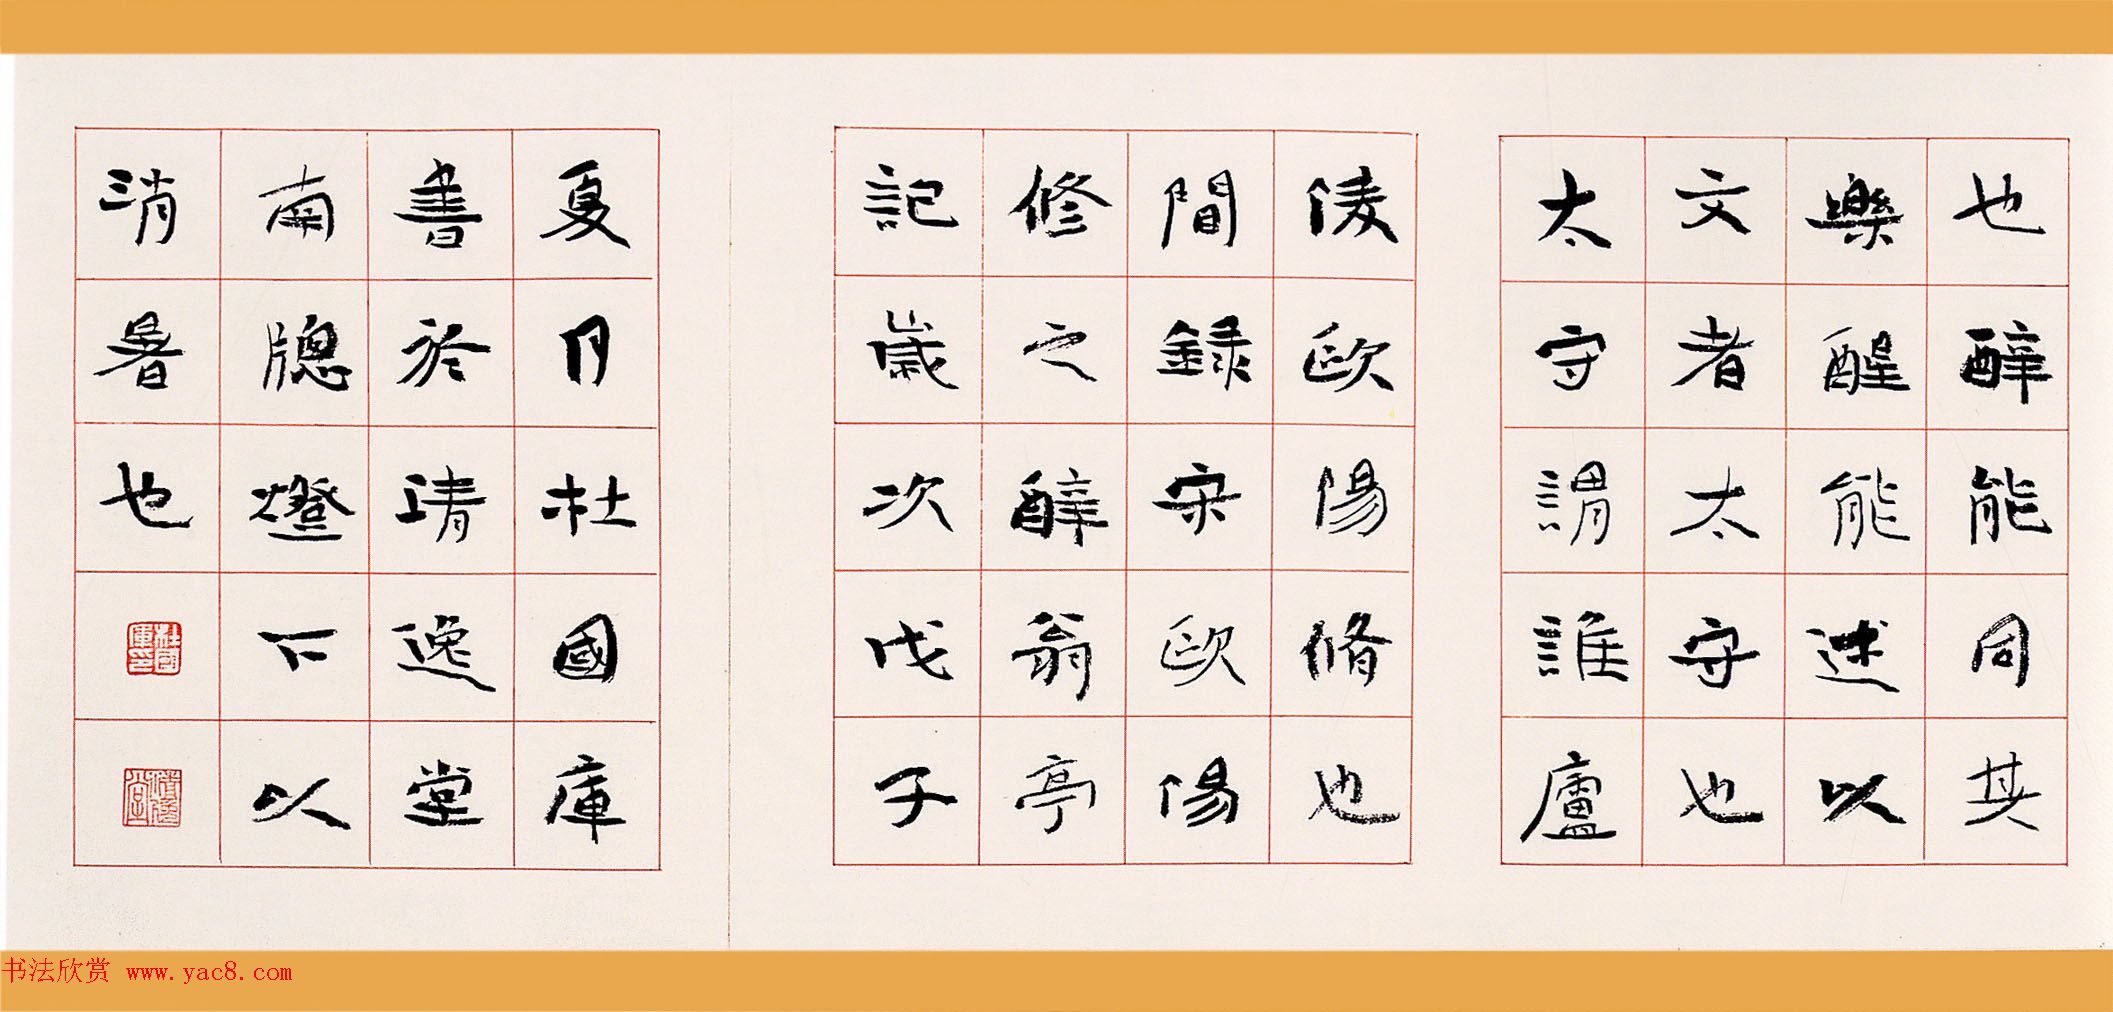 也醉能同其
樂醒能述以
文者太守也
太守謂誰廬
陵歐陽脩也
間録宋歐陽
修之醉翁亭
記歲次戊子
夏月杜國庫
書於靖逸堂
南牕燈下以
消暑也
杜國庫印
书法欣赏 www.yac8.com